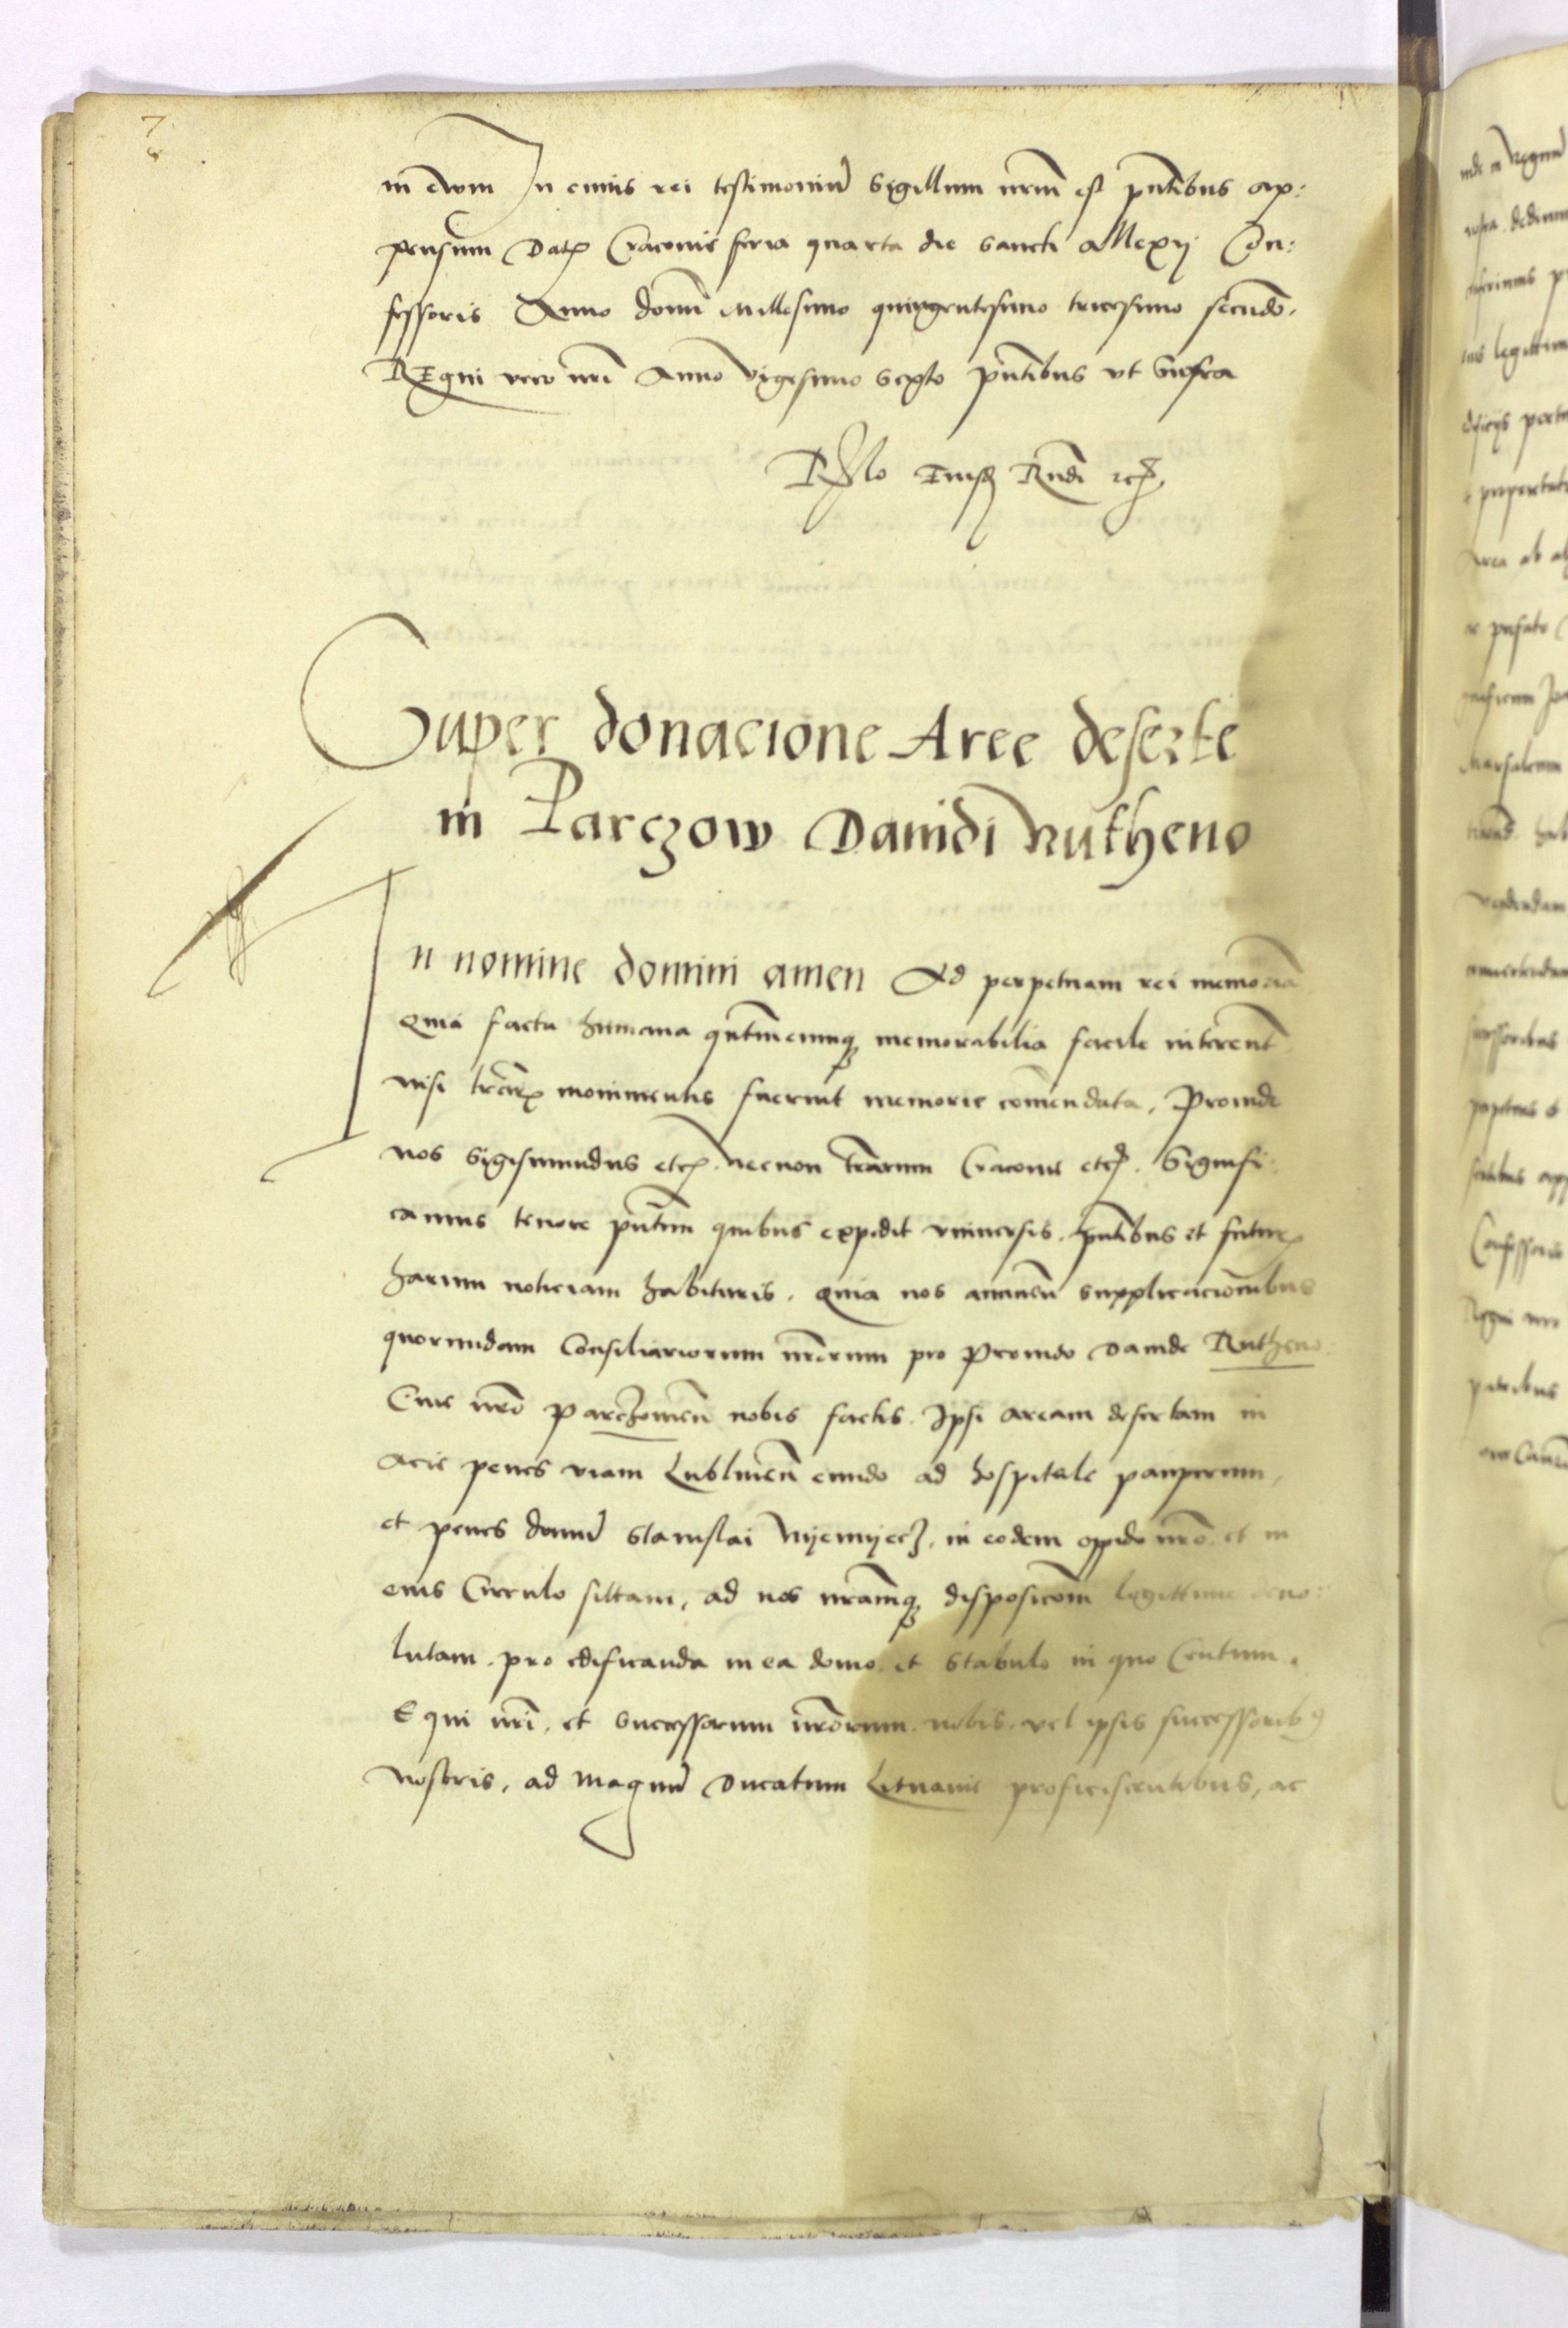 7
in ewm In cuius rei testimoniu sigillum nrm est pntibus ap:
pensum Dat Cracovie feria quarta die sancti Allexij Con:
fessoris Anno domi Millesimo quingentesimo tricesimo secundo.
REgni vero nri Anno vigesimo sexto pntibus vt supra
Rlo Eiusd Rndi etc.
Super donacione Aree deserte
in Parczow Dauidi Rutheno
In nomine domini amen Ad perpetuam rei memoria
Quia facta humana qntumcunq memorabilia facile intereunt
nisi lrar monimentis fuerint memorie comendata. Proinde
nos Sigismundus etc. necnon terrarum Cracovie etc. Signifi:
camus tenore pntium quibus expedit vniuersis. pntibus et futur
harum noticiam habituris. Quia nos annuen supplicacionibus
quorundam Consiliariorum nrorum pro Prouido Dauide Rutheno
Ciue nro Parczouien nobis factis. Ipsi aream desertam in
acie penes viam Lublinen eundo ad hospitale pauperum,
et penes domu Stanislai Nyemyecz, in eodem oppido nro. et in
eius Circulo sittam, ad nos nramq disposicom legittime deuo:
lutam. pro edificanda in ea domo. et stabulo in quo Centum.
Equi nri, et successorum nrorum. nobis. vel ipsis successorib
nostris, ad Magnu Ducatum Lituanie proficiscentibus, ac